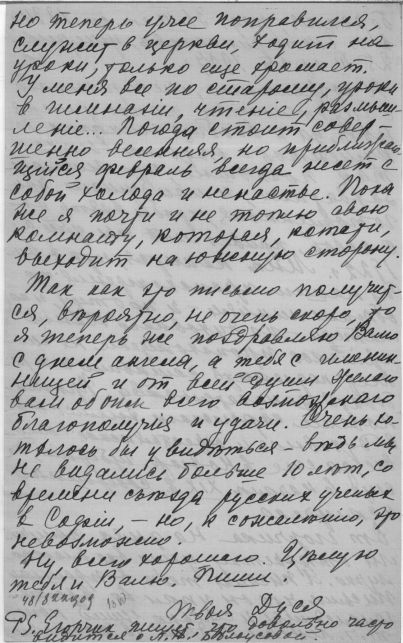 но теперь уже поправился,
служит в церкви, ходит на
уроки, только еще хромает.
У меня все по старому, уроки
в гимназіи, чтеніе, размыш-
леніе... Погода стоит совер-
шенно весенняя, но приближаю-
щійся февраль всегда несет с
собой холода и ненастье. Пока
же я почти и не топлю свою
комнату, которая, кстати,
выходит на южную сторону.
Так как это письмо получит-
ся, вѣроятно, не очень скоро, то
я теперь же поздравляю Валю
с днем ангела, а тебя с именин-
ницей и от всей души желаю
вам обоим всего возможнаго
благополучія и удачи. Очень хо-
тѣлось бы увидѣться – вѣдь мы
не видались больше 10 лѣт, со
времени съѣзда русских ученых
в Софіи, – но, к сожалѣнію, это
невозможно.
Ну, всего хорошаго. Цѣлую
тебя и Валю. Пиши.
Твоя Дуся
PS. Егорчик пишет, что довольно часто
видится с Бѣлоусовой